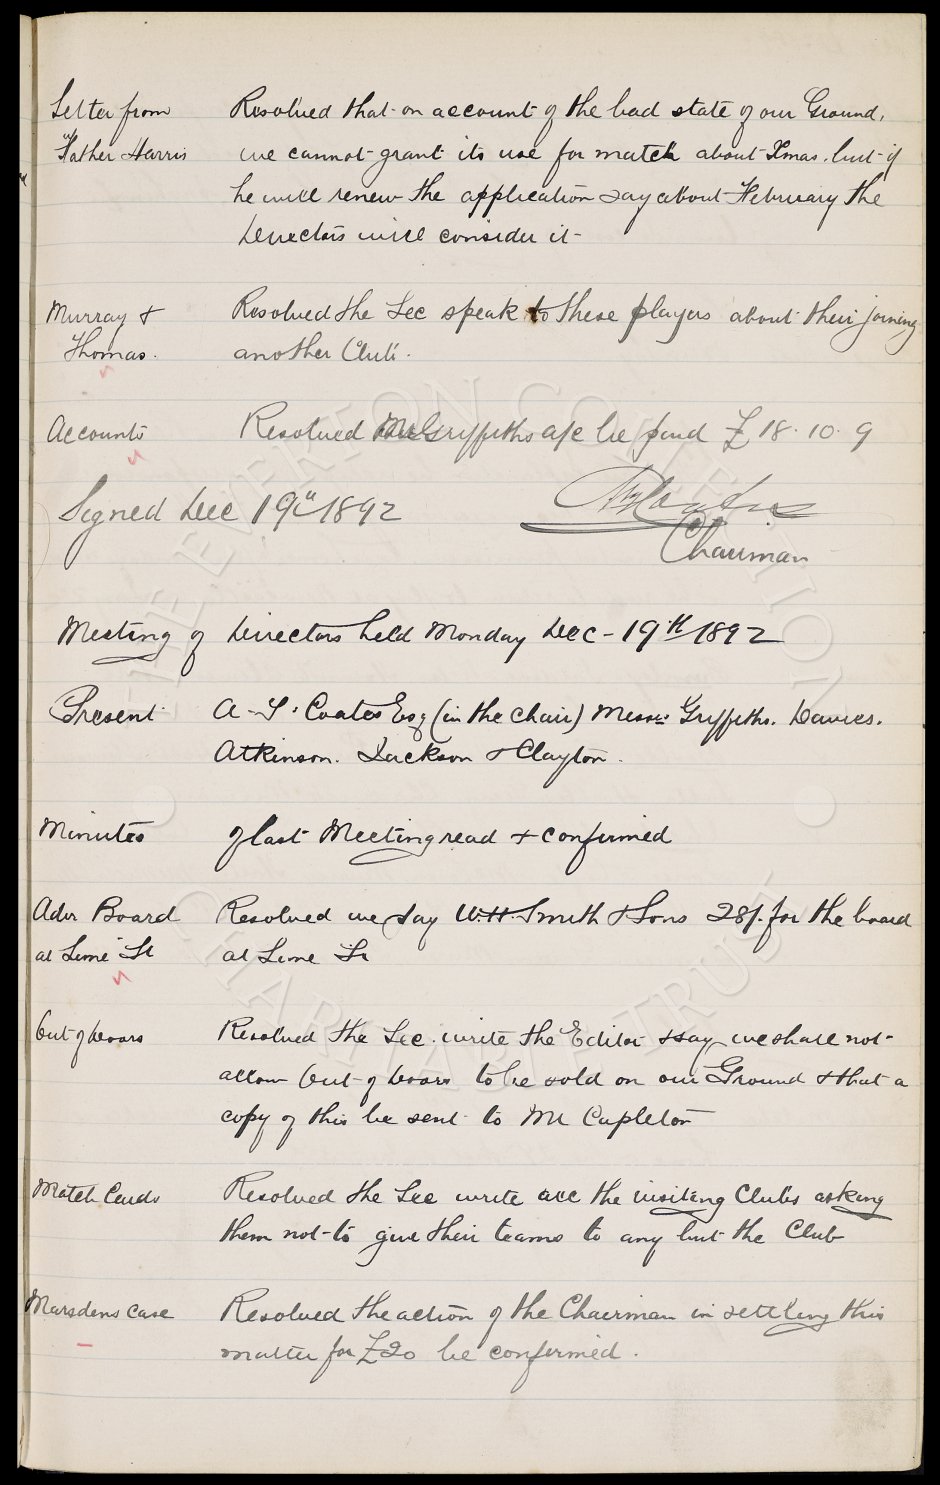 Letter from Resolved that on account of the bad state of our Ground,
Father Harris we cannot grant its use for match about Xmas. but if
he will renew the application say about February the
Directors will consider it
Murray & Resolved the Sec speak to these players about their joining
Thomas. another Club.
Accounts Resolved Mr Griffiths a/c be paid £18.10.9
Signed Dec 19th 1892
Chairman
Meeting of Directors held Monday Dec - 19th 1892
Present A. T. Coates Esq (in the chair) Messrs Griffiths. Davies.
Atkinson. Jackson & Clayton.
Minutes of last Meeting read & confirmed
Adv Board Resolved we pay W.H. Smith & Sons 28/. for the board
at Lime St at Lime St
Out of doors Resolved the Sec. write the Editor & say we shall not
allow Out of doors to be sold on our Ground & that a
copy of this be sent to Mr Cupleton
Match Cards Resolved the Sec write all the visiting Clubs asking
them not to give their teams to any but the Club
Marsdens case Resolved the action of the Chairman in settling this
matter for £20 be confirmed.
THE EVERTON COLLECTION
CHARITABLE TRUST